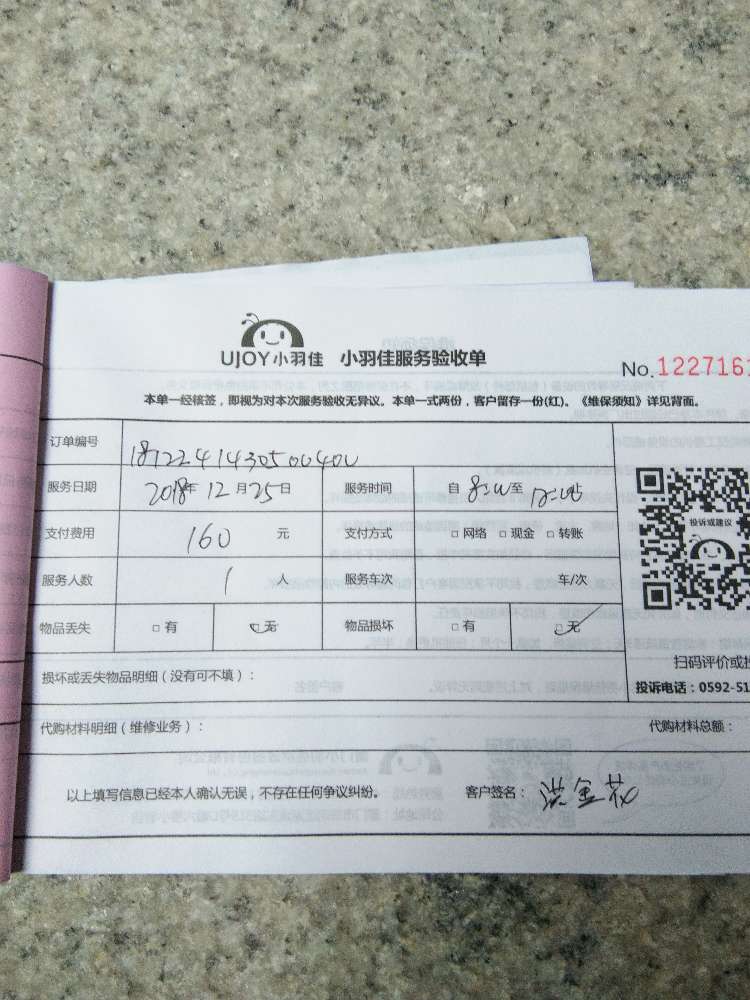 UJOY小羽佳 小羽佳服务验收单
No.1227161
本单一经核签，即视为对本次服务验收无异议。本单一式两份，客户留存一份(红)。《维保须知》详见背面。
订单编号 18122414305000400
服务日期 2018年12月25日 服务时间 自 8:00至 12:00止
支付费用 160 元 支付方式 □网络 □现金 □转账
投诉或建议
服务人数 1 人 服务车次 车/次
物品丢失 □有 ☑无 物品损坏 □有 ☑无
扫码评价或投
损坏或丢失物品明细（没有可不填）：
投诉电话：0592-51
代购材料明细（维修业务）： 代购材料总额：
以上填写信息已经本人确认无误，不存在任何争议纠纷。 客户签名：